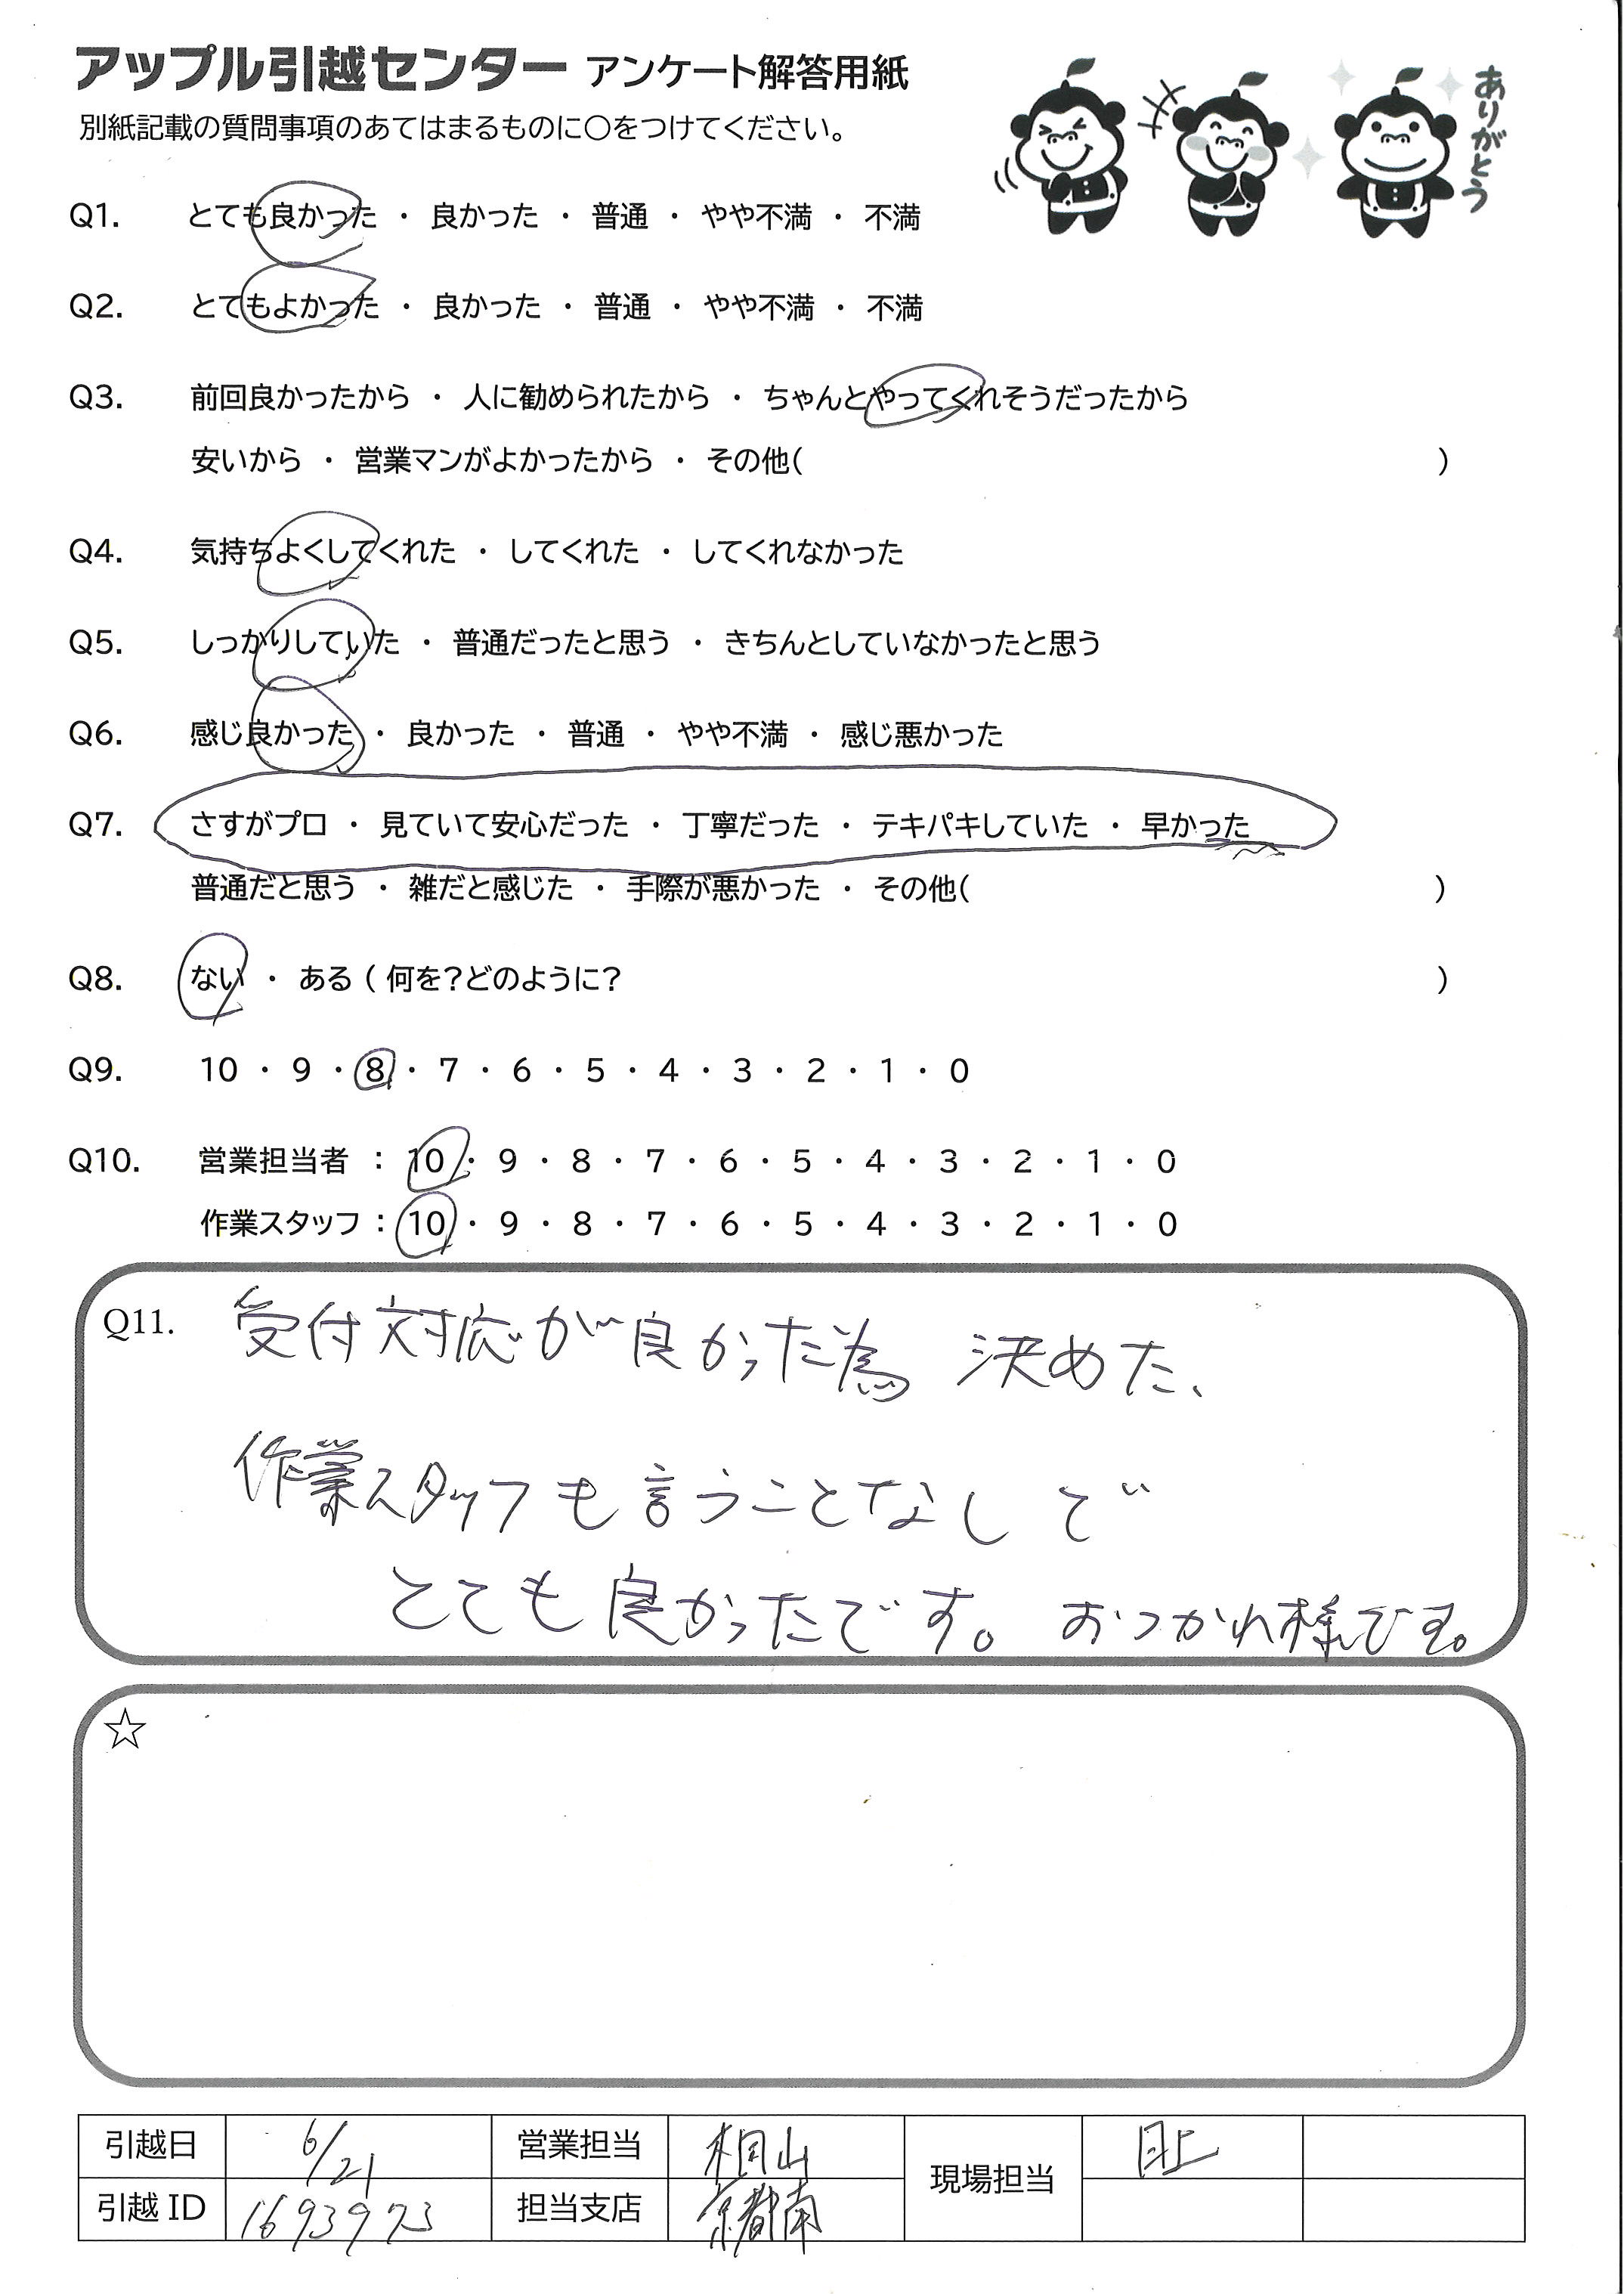 アップル引越センター アンケート解答用紙
ありがとう
別紙記載の質問事項のあてはまるものに〇をつけてください。
Q1. とても良かった ・ 良かった ・ 普通 ・ やや不満 ・ 不満
Q2. とてもよかった ・ 良かった ・ 普通 ・ やや不満 ・ 不満
Q3. 前回良かったから ・ 人に勧められたから ・ ちゃんとやってくれそうだったから
安いから ・ 営業マンがよかったから ・ その他( )
Q4. 気持ちよくしてくれた ・ してくれた ・ してくれなかった
Q5. しっかりしていた ・ 普通だったと思う ・ きちんとしていなかったと思う
Q6. 感じ良かった ・ 良かった ・ 普通 ・ やや不満 ・ 感じ悪かった
Q7. さすがプロ ・ 見ていて安心だった ・ 丁寧だった ・ テキパキしていた ・ 早かった
普通だと思う ・ 雑だと感じた ・ 手際が悪かった ・ その他( )
Q8. ない ・ ある ( 何を?どのように? )
Q9. 10 ・ 9 ・ 8 ・ 7 ・ 6 ・ 5 ・ 4 ・ 3 ・ 2 ・ 1 ・ 0
Q10. 営業担当者 : 10 ・ 9 ・ 8 ・ 7 ・ 6 ・ 5 ・ 4 ・ 3 ・ 2 ・ 1 ・ 0
作業スタッフ : 10 ・ 9 ・ 8 ・ 7 ・ 6 ・ 5 ・ 4 ・ 3 ・ 2 ・ 1 ・ 0
Q11. 受付対応が良かった為 決めた、
作業スタッフも言うことなしで
とても良かったです。 おつかれ様です。
☆
引越日 6/21 営業担当 桐山 現場担当
引越 ID 1693973 担当支店 京都南